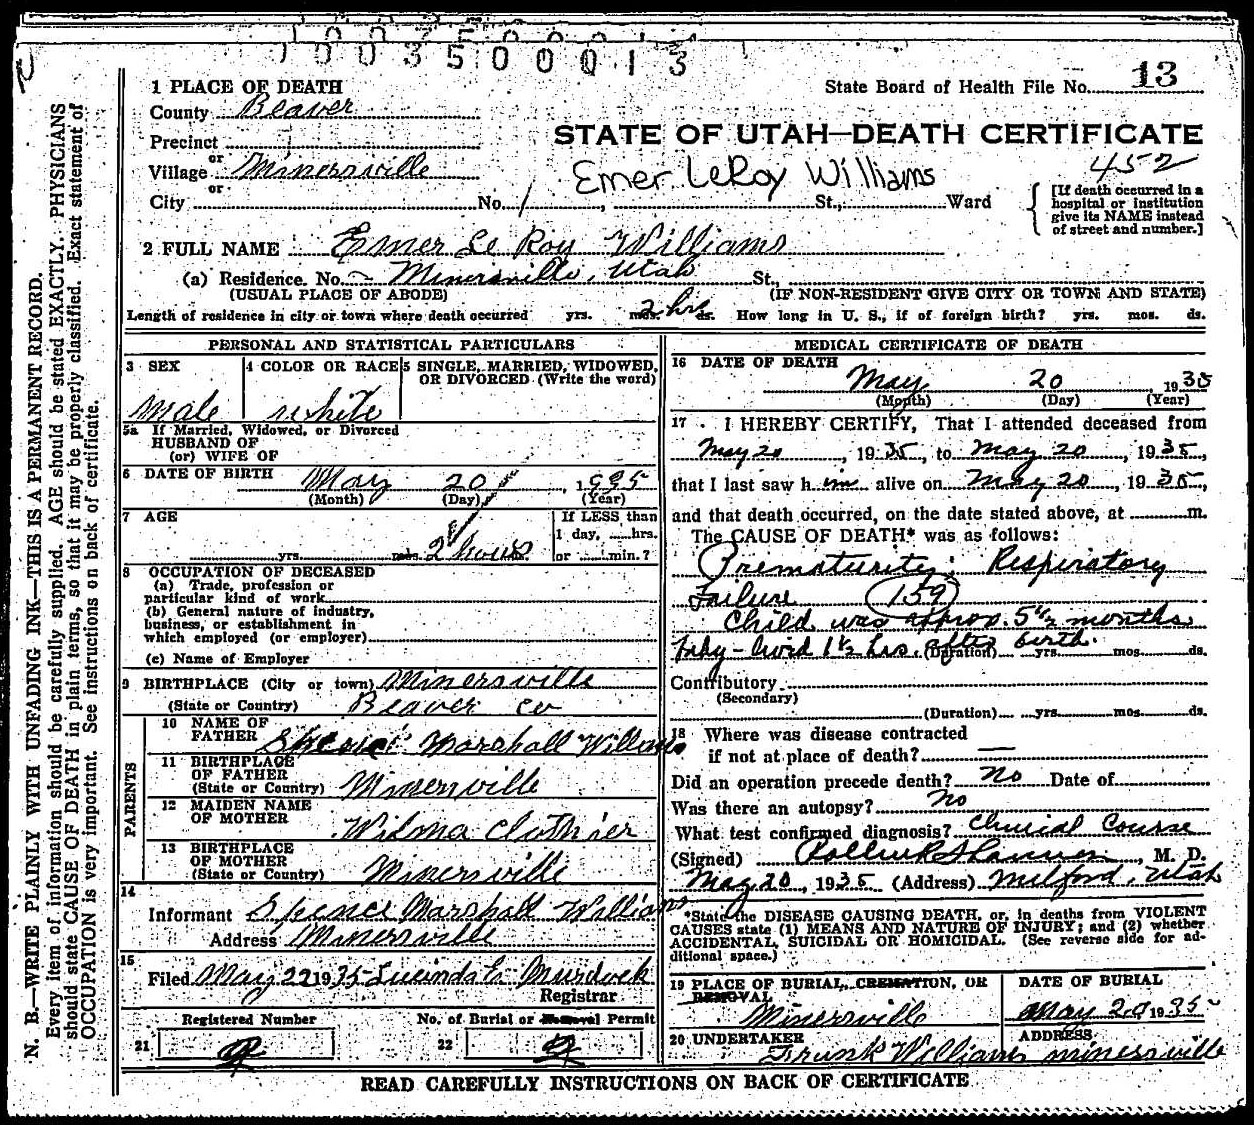 1003500013
1 PLACE OF DEATH
State Board of Health File No. 13
County Beaver
STATE OF UTAH—DEATH CERTIFICATE
Precinct
452
or
Village Minersville
Emer LeRoy Williams
or
City No. St., Ward
[If death occurred in a
hospital or institution
give its NAME instead
of street and number.]
2 FULL NAME Emer Le Roy Williams
(a) Residence. No. Minersville, Utah St.,
(USUAL PLACE OF ABODE) (IF NON-RESIDENT GIVE CITY OR TOWN AND STATE)
Length of residence in city or town where death occurred yrs. mos. 2 hrs ds. How long in U. S., if of foreign birth? yrs. mos. ds.
PERSONAL AND STATISTICAL PARTICULARS
3 SEX
Male
4 COLOR OR RACE
white
5 SINGLE, MARRIED, WIDOWED,
OR DIVORCED (Write the word)
5a If Married, Widowed, or Divorced
HUSBAND OF
(or) WIFE OF
6 DATE OF BIRTH May 20, 1935
(Month) (Day) (Year)
7 AGE
yrs. mos. 2 hours
If LESS than
1 day, hrs.
or min.?
8 OCCUPATION OF DECEASED
(a) Trade, profession or
particular kind of work
(b) General nature of industry,
business, or establishment in
which employed (or employer)
(c) Name of Employer
9 BIRTHPLACE (City or town) Minersville
(State or Country) Beaver co
PARENTS
10 NAME OF
FATHER Marshall Williams
11 BIRTHPLACE
OF FATHER
(State or Country) Minersville
12 MAIDEN NAME
OF MOTHER Wilma Cluthier
13 BIRTHPLACE
OF MOTHER
(State or Country) Minersville
14
Informant Spence Marshall Williams
Address Minersville
15
Filed May 22 1935 Lucinda E. Murdock
Registrar
Registered Number
No. of Burial or Removal Permit
21
22
MEDICAL CERTIFICATE OF DEATH
16 DATE OF DEATH
May 20 1935
(Month) (Day) (Year)
17 I HEREBY CERTIFY, That I attended deceased from
May 20, 1935, to May 20, 1935,
that I last saw him alive on May 20, 1935,
and that death occurred, on the date stated above, at m.
The CAUSE OF DEATH* was as follows:
Prematurity: Respiratory
Failure 159
Child was approx. 5½ months
baby - lived 1½ hrs. after birth.
(Duration) yrs. mos. ds.
Contributory
(Secondary)
(Duration) yrs. mos. ds.
18 Where was disease contracted
if not at place of death? —
Did an operation precede death? no Date of
Was there an autopsy? no
What test confirmed diagnosis? Clinical Course
(Signed) , M. D.
May 20, 1935 (Address) Milford, Utah
*State the DISEASE CAUSING DEATH, or, in deaths from VIOLENT
CAUSES state (1) MEANS AND NATURE OF INJURY; and (2) whether
ACCIDENTAL, SUICIDAL OR HOMICIDAL. (See reverse side for ad-
ditional space.)
19 PLACE OF BURIAL, CREMATION, OR
REMOVAL
Minersville
DATE OF BURIAL
May 20 1935
20 UNDERTAKER
Frank Williams
ADDRESS
minersville
READ CAREFULLY INSTRUCTIONS ON BACK OF CERTIFICATE
N. B.—WRITE PLAINLY WITH UNFADING INK—THIS IS A PERMANENT RECORD.
Every item of information should be carefully supplied. AGE should be stated EXACTLY. PHYSICIANS
should state CAUSE OF DEATH in plain terms, so that it may be properly classified. Exact statement of
OCCUPATION is very important. See instructions on back of certificate.